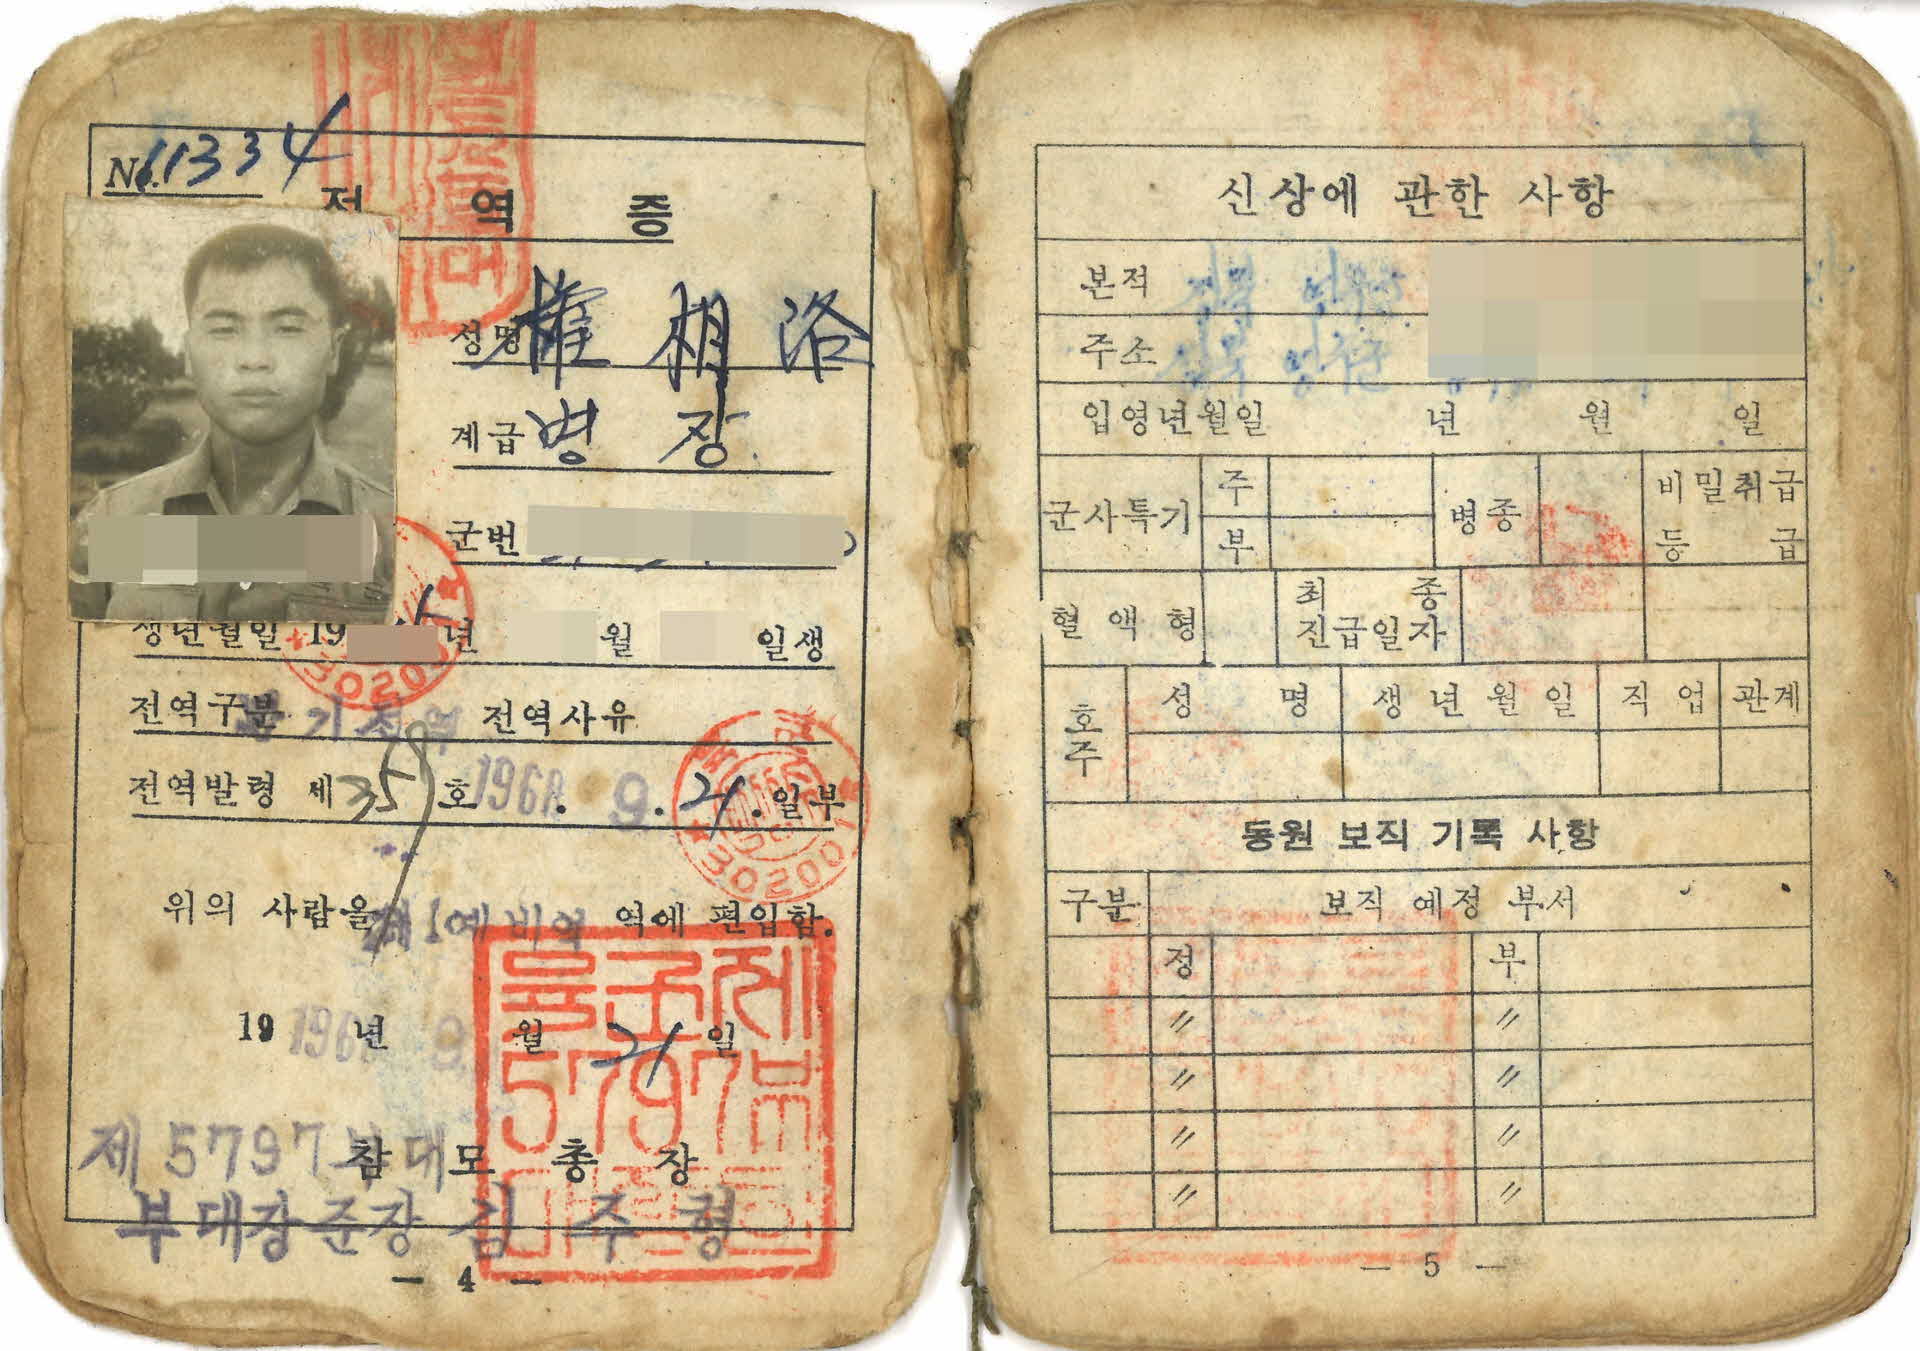 No. 11334
전역증
성명 權相洛
계급 병장
군번
생년월일 19 년 월 일생
30200
전역구분 만기전역 전역사유
전역발령 제359호 1968. 9. 21. 일부
30200
위의 사람을 제1예비역 역에 편입함.
19 1968 년 9 월 21 일
제5797부대
참모총장
부대장준장 김주형
— 4 —
신상에 관한 사항
본적
주소
입영년월일 년 월 일
군사특기 주 부 병종 비밀취급 등급
혈액형 최종 진급일자
호주 성명 생년월일 직업 관계
동원 보직 기록 사항
구분 보직 예정 부서
정 부
〃 〃
〃 〃
〃 〃
〃 〃
— 5 —